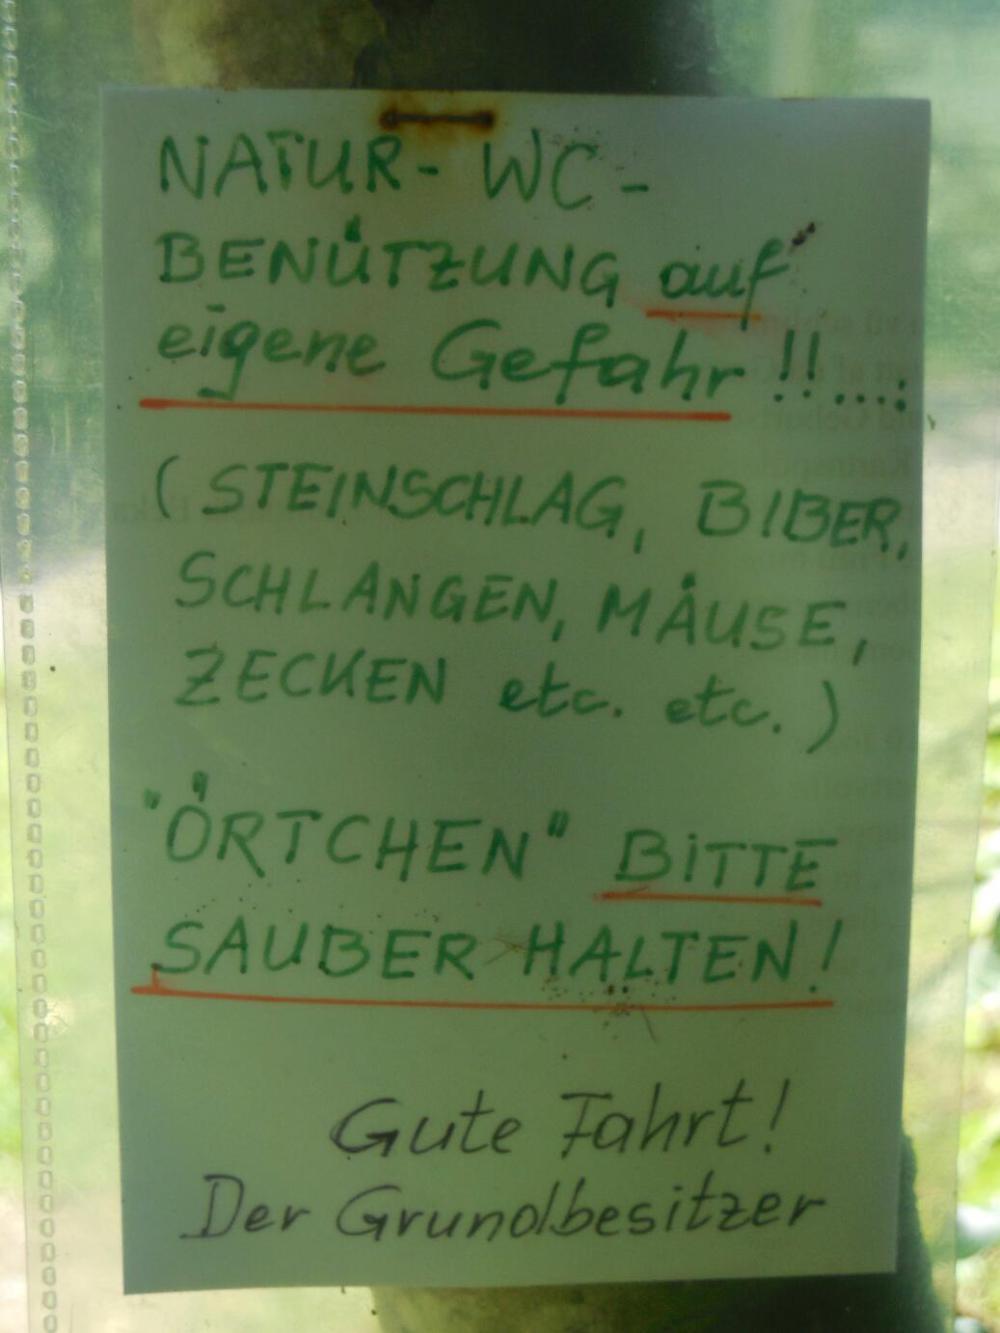 NATUR- WC-
BENÜTZUNG auf
eigene Gefahr !!....
(STEINSCHLAG, BIBER,
SCHLANGEN, MÄUSE,
ZECKEN etc. etc.)
"ÖRTCHEN" BITTE
SAUBER HALTEN!
Gute Fahrt!
Der Grundbesitzer